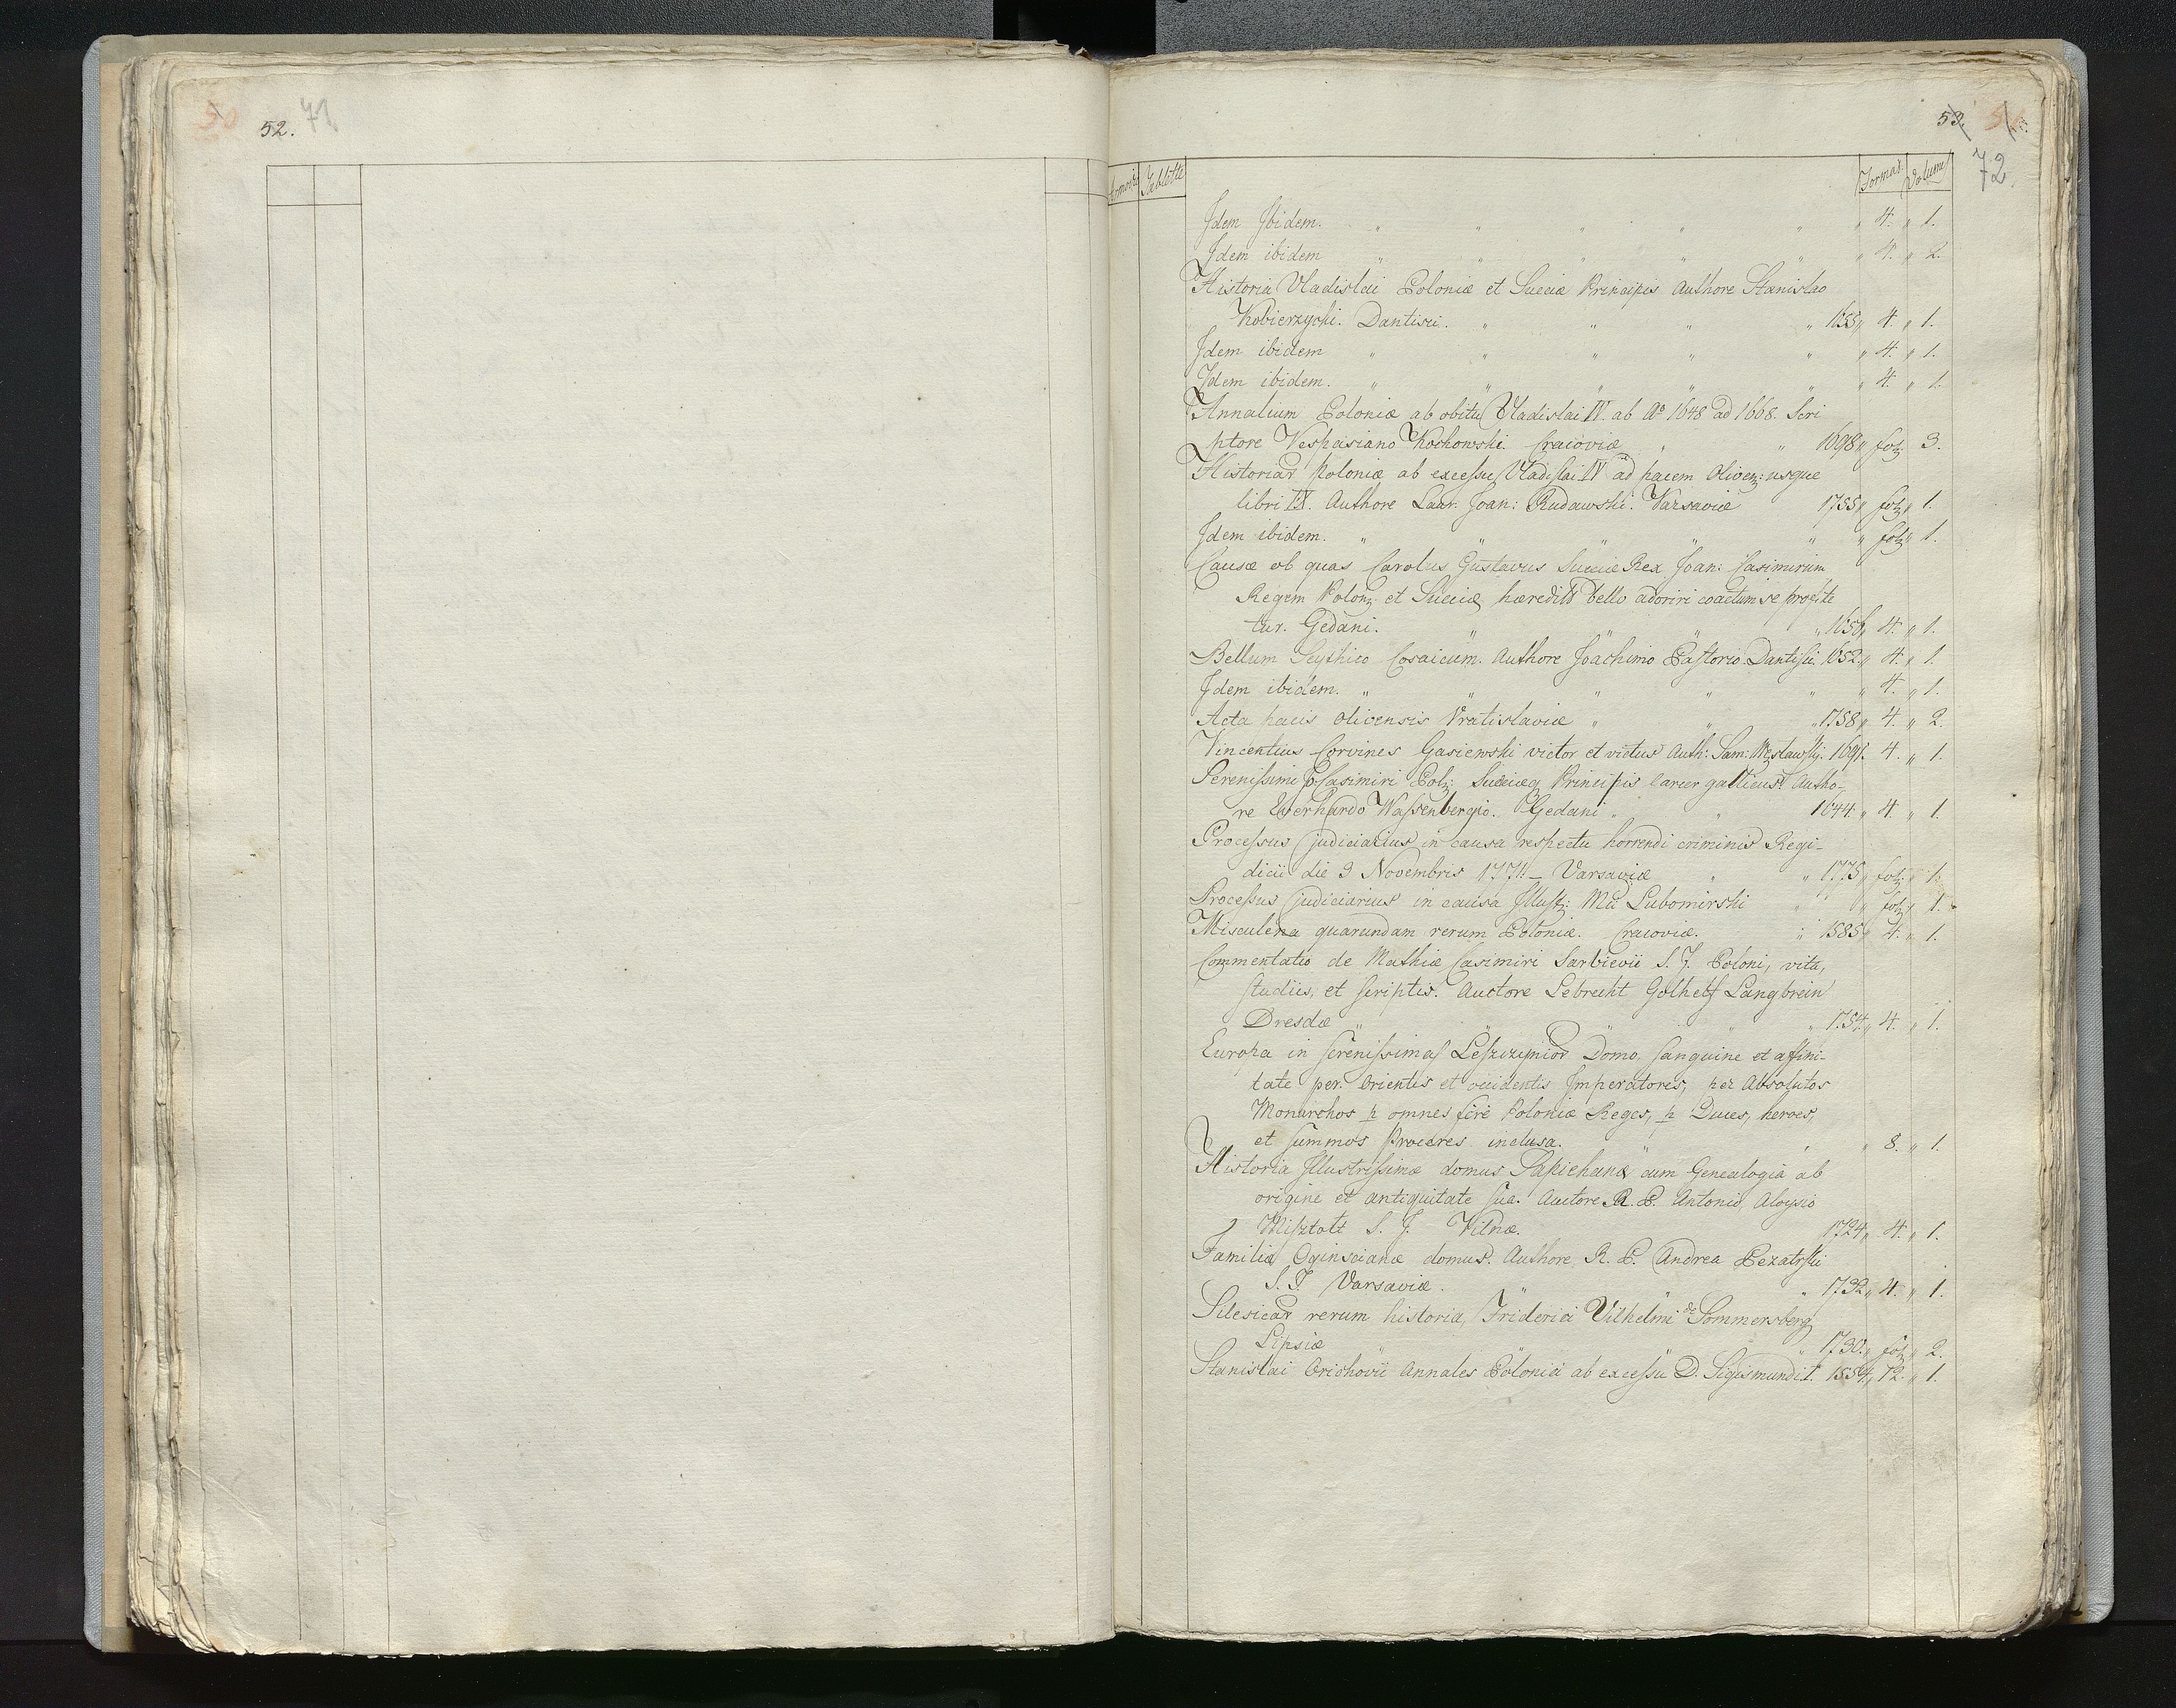 50 52. 71.
53. 51
72.
Armoire Tablette Format. Volume
Idem Ibidem. " " " " " " 4. " 1.
Idem ibidem " " " " " " 4. " 2.
Historia Vladislai Poloniæ et Sueciæ Principis Authore Stanislao
Kobierzycki. Dantisci. " " " " 1655 " 4. " 1.
Idem ibidem " " " " " " 4. " 1.
Idem ibidem. " " " " " " 4. " 1.
Annalium Poloniæ ab obitu Vladislai IV. ab Aº 1648 ad 1668. Scri
ptore Vespasiano Kochowski. Cracoviæ " " 1698 " fol: 3.
Historiar Poloniæ ab excessu Vladislai IV ad pacem Oliven: usque
libri IX. Authore Laur. Joan: Rudawski. Varsaviæ 1755 " fol: " 1.
Idem ibidem. " " " " " " fol: " 1.
Causæ ob quas Carolus Gustavus Sueciæ Rex Joan: Casimirum
Regem Polon: et Sueciæ hæredit bello adoriri coactum se profite
tur. Gedani. " " " 1656 " 4. " 1.
Bellum Scythico Cosaicum. Authore Joachimo Pastorio. Dantisci. 1652. " 4. " 1.
Idem ibidem. " " " " " " 4. " 1.
Acta pacis Olivensis Vratislaviæ " " " 1758 " 4. " 2.
Vincentius Corvines Gasiewski victor et victus Auth: Sam: Węsławski. 1691. 4. " 1.
Serenissimi Casimiri Pol: Sueciæq Principis carcer gallicus. Autho-
re Everhardo Wassenbergio. Gedani " " 1644. " 4. " 1.
Processus judiciarius in causa respectu horrendi criminis Regi-
dicii die 3 Novembris 1771. Varsaviæ " " 1775 " fol: " 1.
Processus judiciarius in causa Illust: Mci Lubomirski " " fol: " 1.
Misculena quarundam rerum Poloniæ. Cracoviæ. " 1585 " 4. " 1.
Commentatio de Mathiæ Casimiri Sarbievii S. J. Poloni, vita,
studiis, et scriptis. Auctore Lebrecht Golhelf Langbrein
Dresdæ " " " " " 1754. " 4. " 1.
Europa in serenissimas Leszczynior Domo, sanguine et affini-
tate per. Orientis et occidentis Imperatores, per Absolutos
Monarchos p omnes fere Poloniæ Reges, p Duces, heroes,
et summos Proceres inclusa. " " " 8. " 1.
Historia Illustrissimæ domus Sapiehanæ cum Genealogia ab
origine et antiquitate sua. Auctore R. P. Antonio, Aloysio
Misztolt S. J. Vilnæ. 1724 " 4. " 1.
Familia Oginscianæ domus. Authore R. P. Andrea Pezatrski
S. J. Varsaviæ. " " " 1732 " 4. " 1.
Silesicar rerum historia, Friderici Vilhelmi de Sommersberg
Lipsiæ " " " 1730. " fol: " 2.
Stanislai Orichovii Annales Polonici ab excessu D. Sigismundi I. 1554. " 12. " 1.